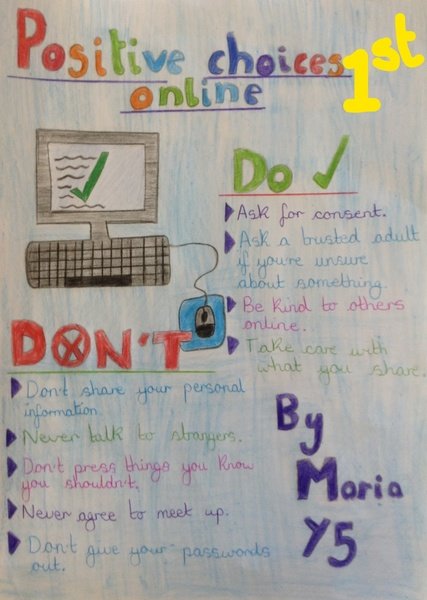 Positive choices
online
1st
Do ✓
Ask for consent.
Ask a trusted adult
if you're unsure
about something.
Be kind to others
online.
Take care with
what you share.
DON'T
Don't share your personal
information
Never talk to strangers.
Don't press things you know
you shouldn't.
Never agree to meet up.
Don't give your passwords
out.
By
Maria
Y5